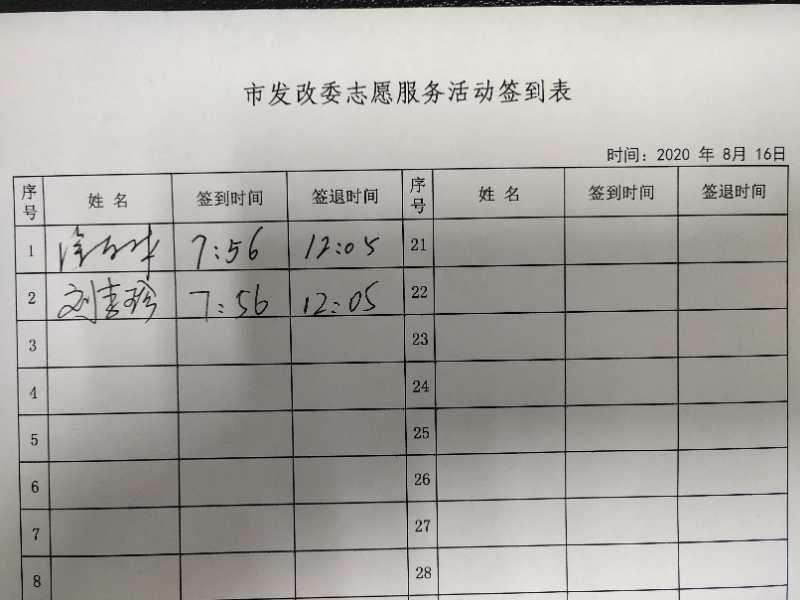 市发改委志愿服务活动签到表
时间：2020 年 8月 16日
序号 姓 名 签到时间 签退时间 序号 姓 名 签到时间 签退时间
1 7:56 12:05 21
2 刘 珍 7:56 12:05 22
3 23
4 24
5 25
6 26
7 27
8 28